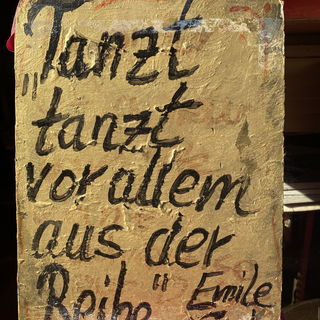 "Tanzt
tanzt
vor allem
aus der
Reihe" Emile